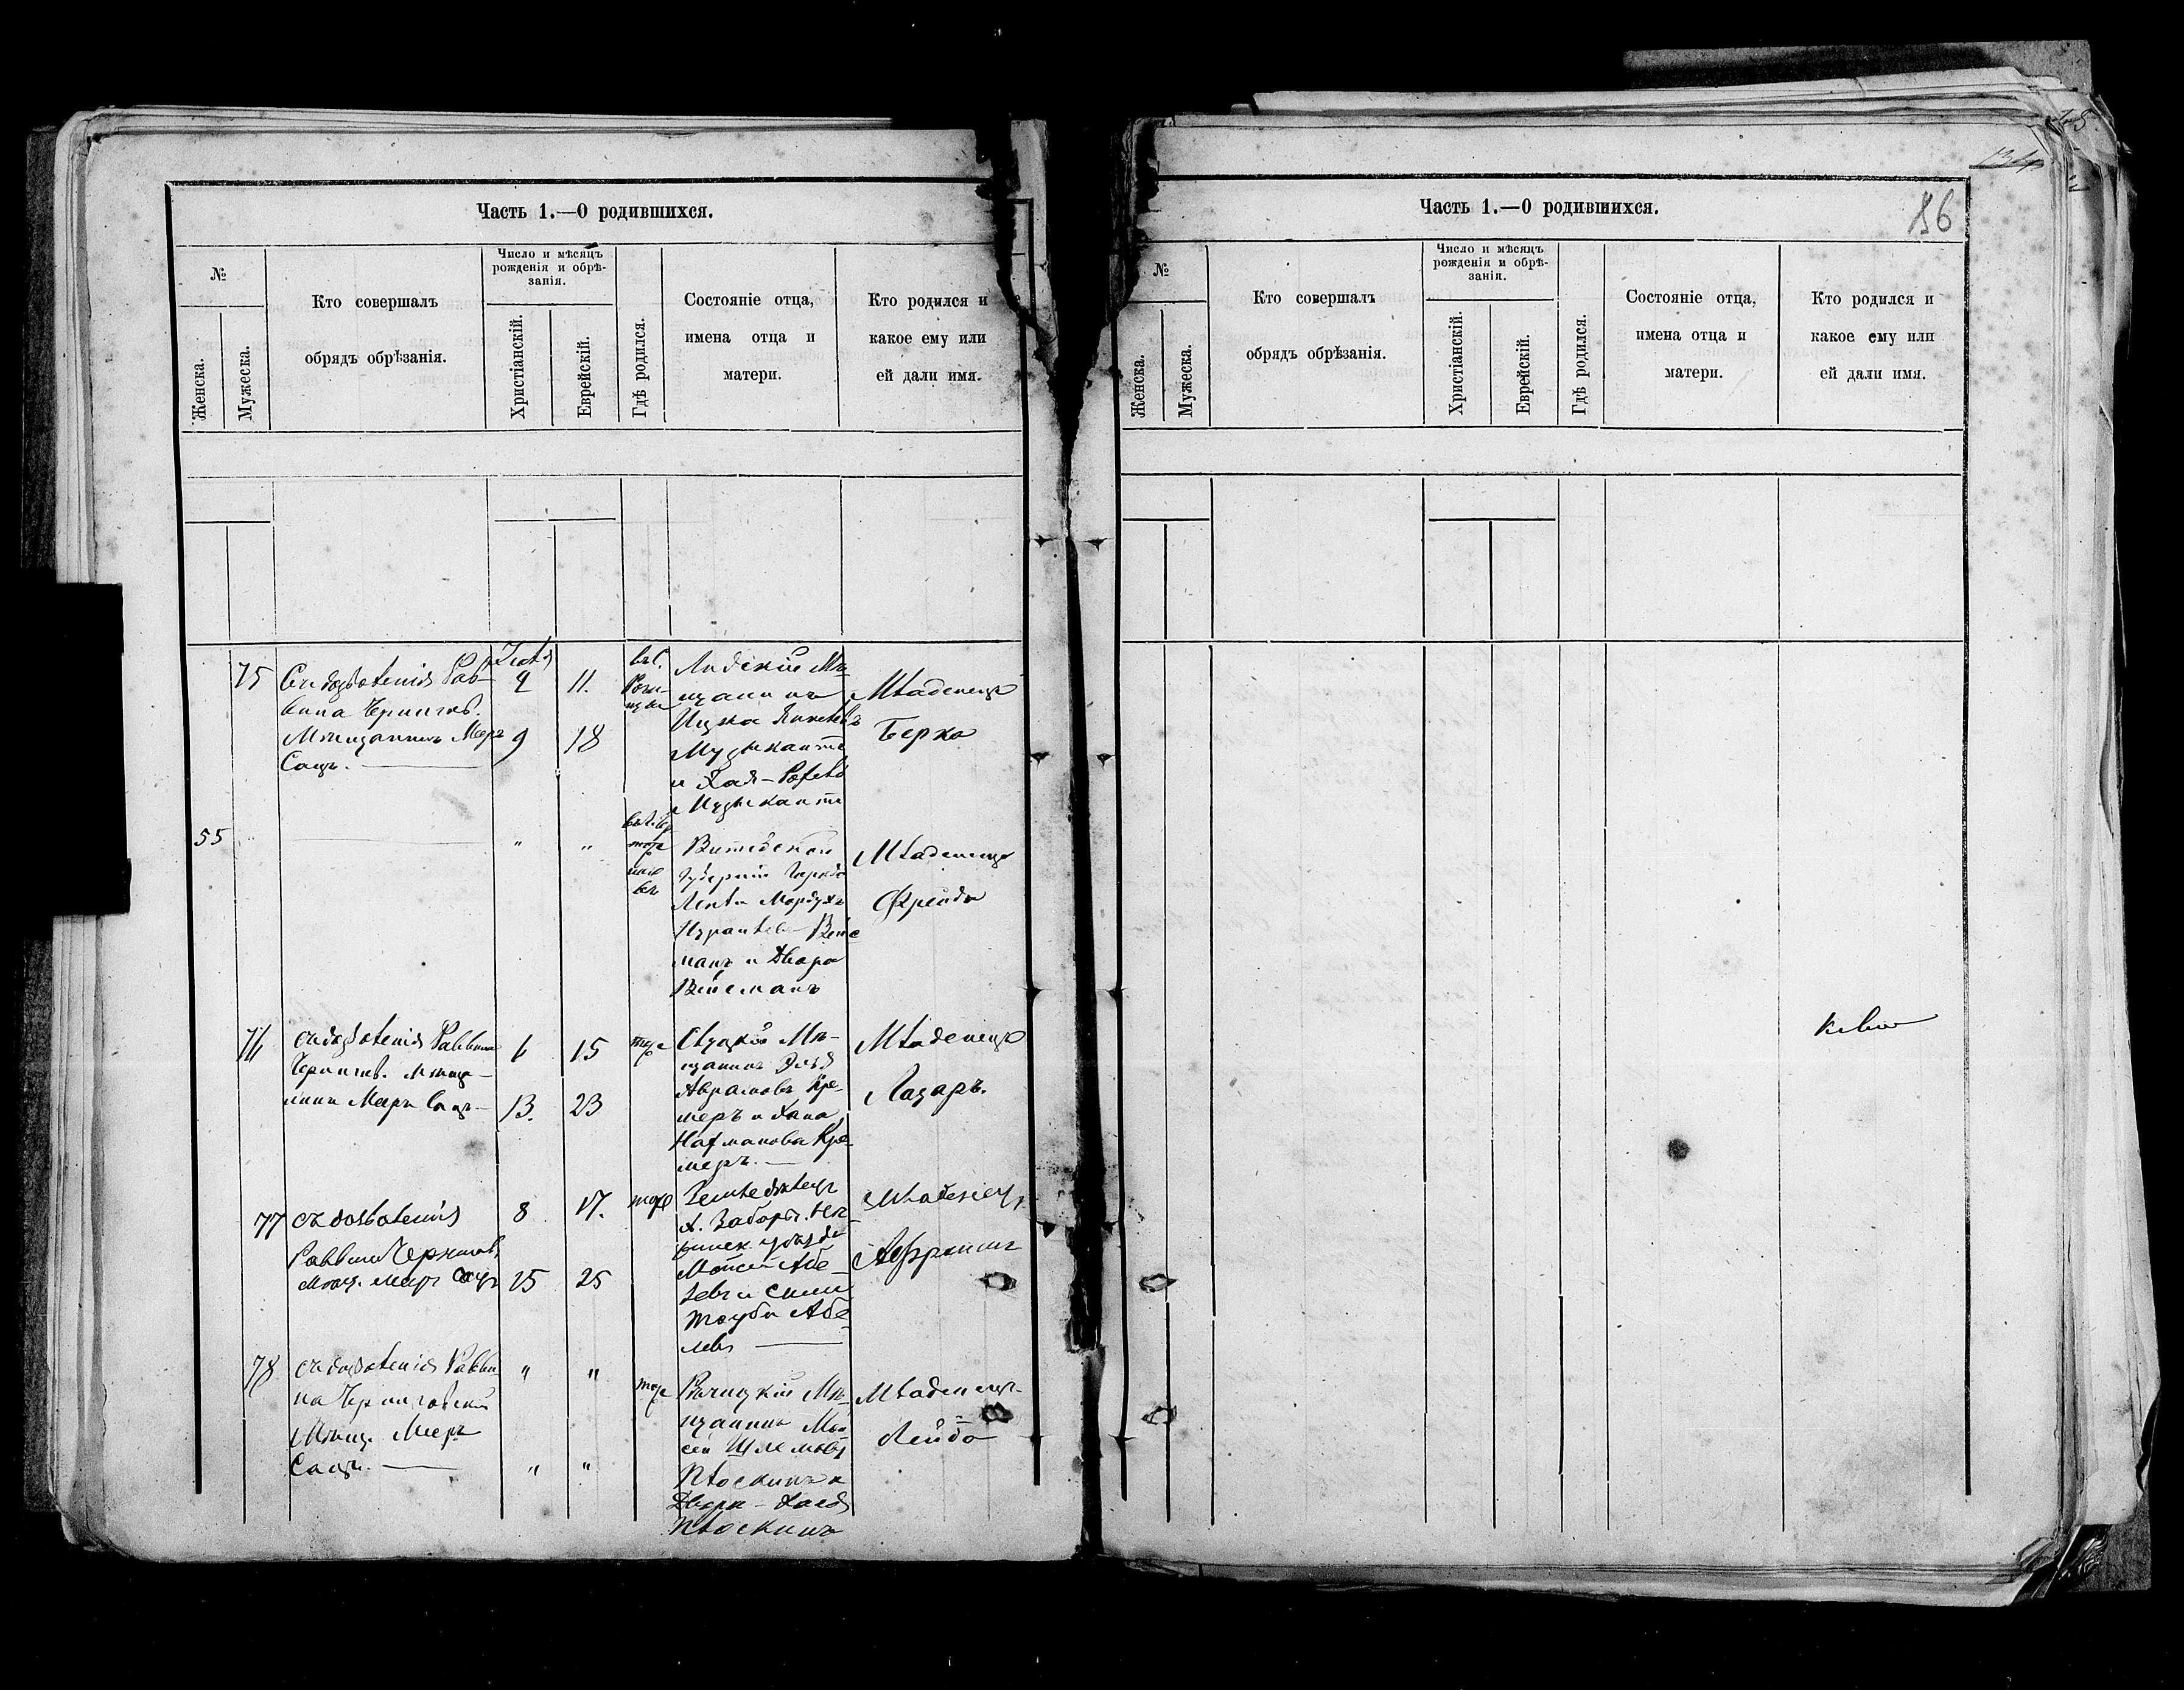 Часть 1.—О родившихся.
№
Женска.
Мужеска.
Кто совершалъ
обрядъ обрѣзанія.
Число и мѣсяцъ
рожденія и обрѣ-
занія.
Христіанскій.
Еврейскій.
Гдѣ родился.
Состояніе отца,
имена отца и
матери.
Кто родился и
какое ему или
ей дали имя.
75
Съ дозволенія Рав-
вина Чернигов.
Мѣщанинъ Меръ
Сацъ.
2
11.
9
18
Лидскій Мѣ-
щанинъ
Ицка
Музыкантъ
и Хая-
Музыкантъ
Младенецъ
Берко
55
"
"
тоже
Витебской
Губерніи
Мордухъ
Вейс
манъ и Двора
Вейсманъ
Младенецъ
Фрейда
76
съ дозволенія Раввина
Чернигов. Мѣща-
нинъ Меръ Сацъ
6
15
13.
23
тоже
Слуцкій Мѣ-
щанинъ
Аврамовъ Кре-
меръ и Хана
Нахманова Кре-
меръ.
Младенецъ
Лазаръ.
77
съ дозволенія
Раввина Чернигов.
Мѣщ. Меръ Сацъ
8
17.
15
25
тоже
Земледѣлецъ
уѣзда
Мойсей Абе-
левъ и
Тауба Абе-
левъ
Младенецъ
78
съ дозволенія Равви-
на Черниговскій
Мѣщ. Меръ
Сацъ.
"
"
"
"
тоже
Рѣчицкій Мѣ-
щанинъ Мой
сей Шлемовъ
Плоскинъ и
Двера-Хася
Плоскинъ
Младенецъ
Лейба
Часть 1.—О родившихся.
86
134
№
Женска.
Мужеска.
Кто совершалъ
обрядъ обрѣзанія.
Число и мѣсяцъ
рожденія и обрѣ-
занія.
Христіанскій.
Еврейскій.
Гдѣ родился.
Состояніе отца,
имена отца и
матери.
Кто родился и
какое ему или
ей дали имя.